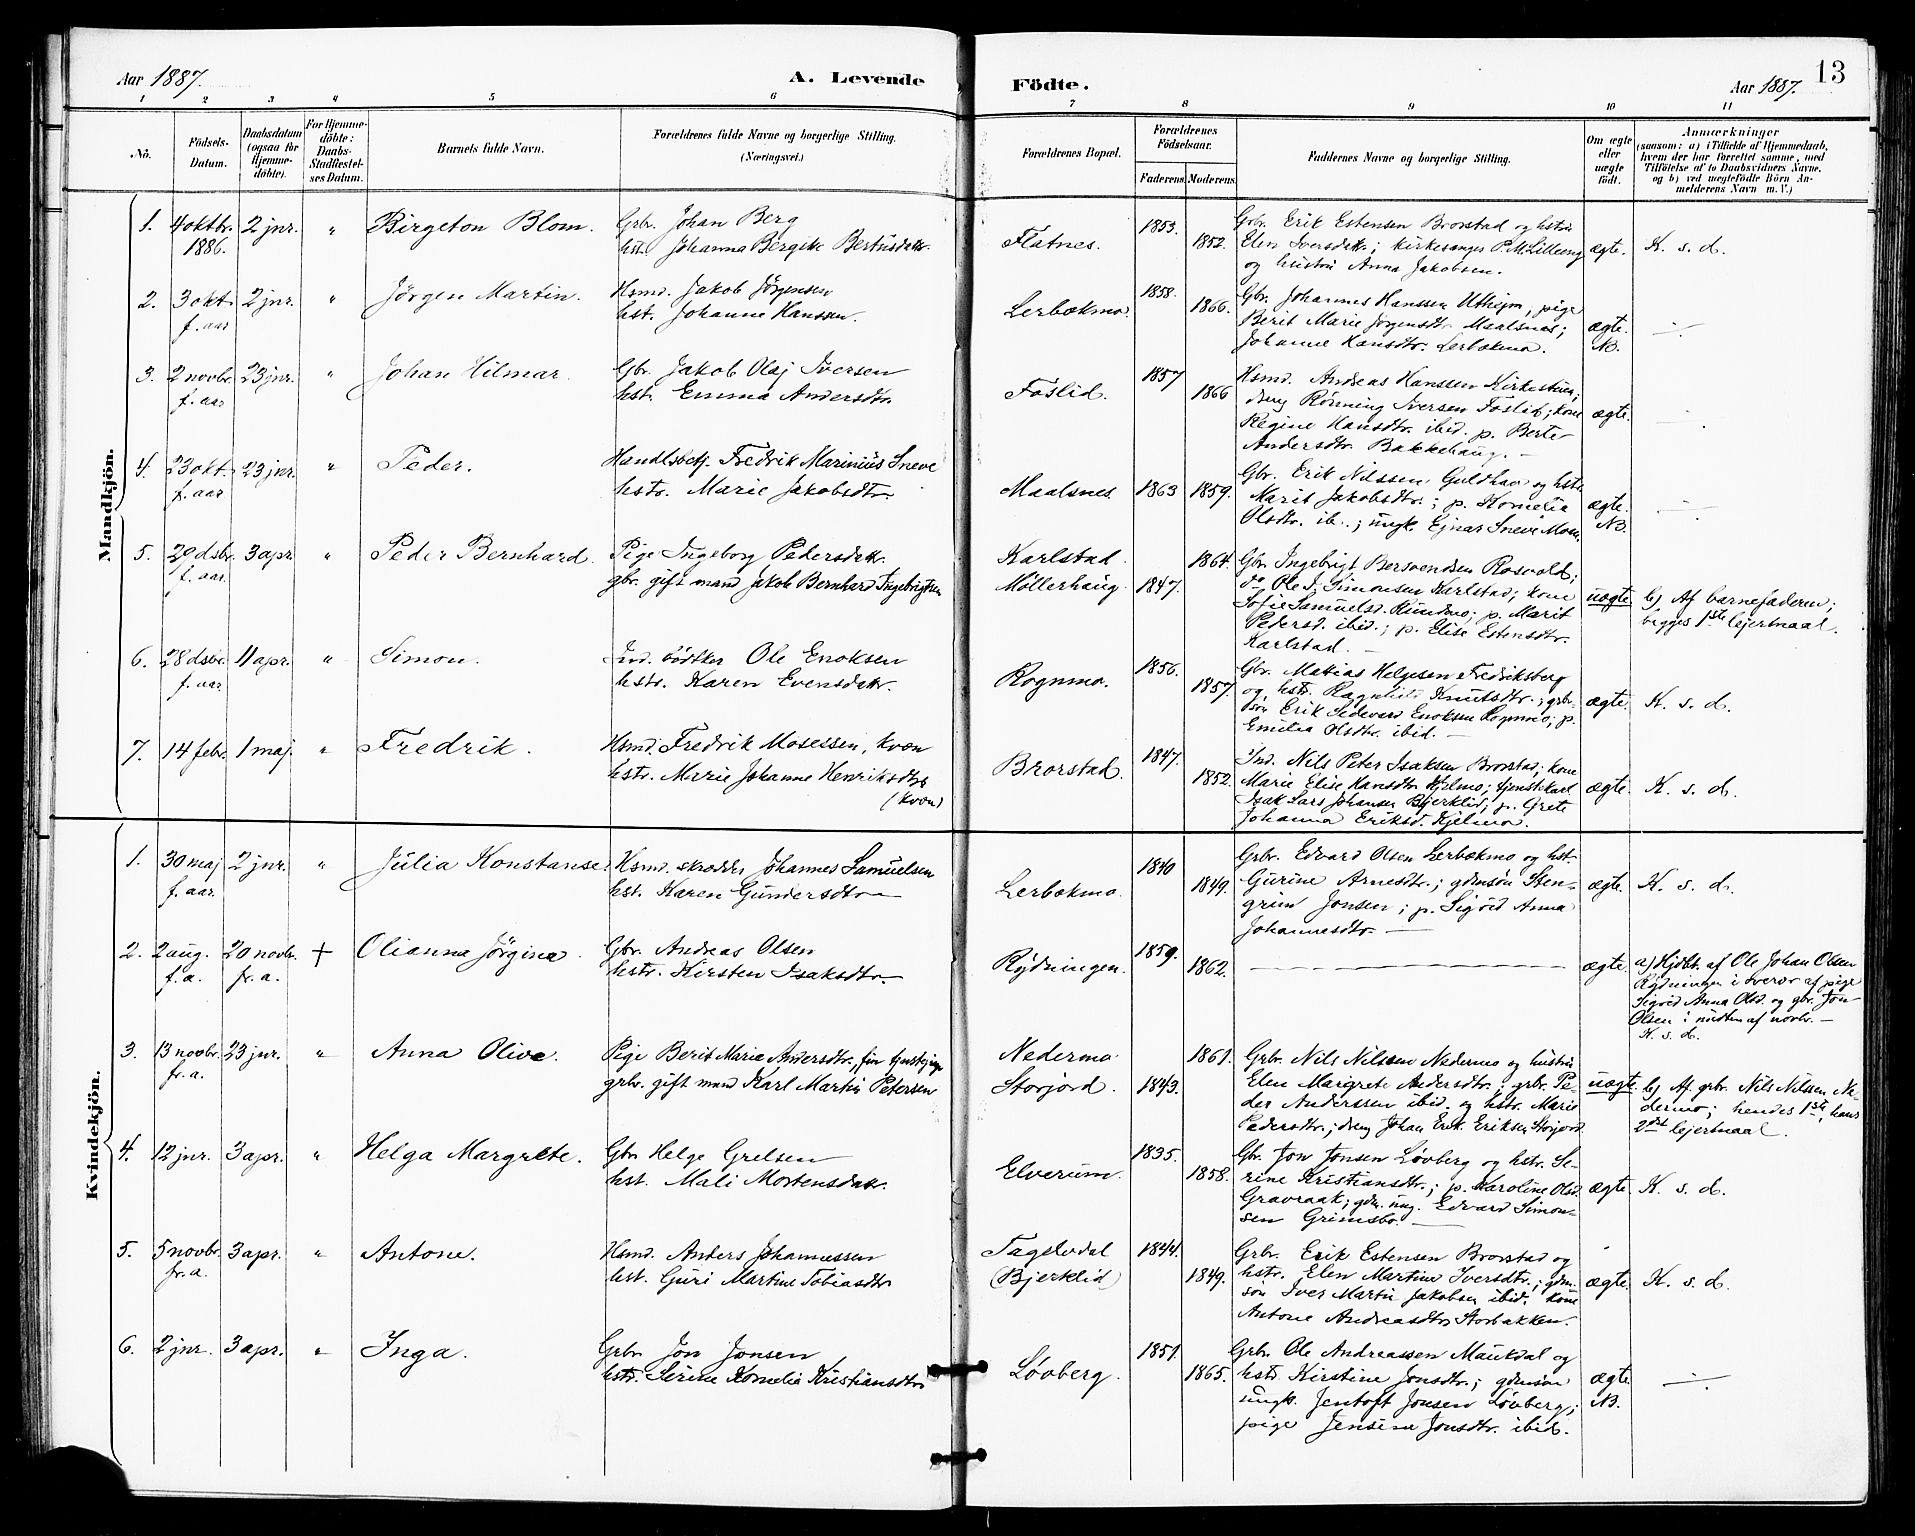 Aar 1887.
A. Levende
Födte.
Aar 1887.
13
1 2 3 4 5 6 7 8 9 10 11
No.
Födsels-
Datum.
Daabsdatum
(ogsaa for
Hjemme-
döbte).
For Hjemme-
döbte:
Daabs-
Stadfæstel-
ses Datum.
Barnets fulde Navn.
Forældrenes fulde Navne og borgerlige Stilling.
(Næringsvei.)
Forældrenes Bopæl.
Forældrenes
Födselsaar.
Faderens. Moderens.
Faddernes Navne og borgerlige Stilling.
Om ægte
eller
uægte
födt.
Anmærkninger
(saasom: a) i Tilfælde af Hjemmedaab,
hvem der har forrettet samme, med
Tilföielse af to Daabsvidners Navne,
og b) ved uægtefödte Börn An-
melderens Navn m. V.)
Mandkjön.
1. 4 oktbr. 2 jnr. " Birgeton Blom.
1886.
Grbr. Johan Berg
hst. Johanna Bergitte Bertusdatr.
Flatnes.
1853.
1852.
Grbr. Erik Estensen Brorstad og hstrü
Elen Iversdatr.; kirkesanger P. M. Lilleeng
og hustrü Anna Jakobsen.
ægte.
K. s. d.
2. 3 okt. 2 jnr. " Jörgen Martin.
f. aar
Hsmd. Jakob Jørgensen
hst. Johanne Hanssen.
Lerbækmo.
1858.
1866.
Gbr. Johannes Hanssen Utheim, pige
Berit Marie Jørgensdtr. Maalsnes;
Johanne Hansdtr. Lerbækmo.
ægte.
N.
3. 2 novbr. 23 jnr. " Johan Hilmar.
f. aar
Gbr. Jakob Olaj Iversen
hst. Emma Andersdtr.
Foslid.
1857
1866
Hsmd. Andreas Hanssen Kirkestuen;
dreng Rönning Iversen Foslid; kone
Regine Hansdtr. ibid. p. Berte
Andersdtr. Bakkehaug.
ægte.
4. 23 okt. 23 jnr. " Peder.
f. aar
Handlsbetj. Fredrik Marinius Sneve
hstr. Marie Jakobsdtr.
Maalsnes.
1863 1859.
Gbr. Erik Nilssen Guldhav og hstr.
Marit Jakobsdtr.; p. Kornelia
Olsdtr. ib.; ungk. Ejnar Sneve Moen.
ægte.
N.
5. 20 dsbr. 3 apr. " Peder Bernhard.
f. aar.
Pige Ingeborg Pedersdatr.
gbr. gift mand Jakob Bernhard Ingebrigtsen
Karlstad.
Møllerhaug.
1864.
1847.
Gbr. Ingebrigt Bersvendsen Rosvold;
do Ole I. Simonsen Karlstad; kone
Sofie Samuelsd. Rundmo; p. Marit
Pedersd. ibid.; p. Elise Estensdtr.
Karlstad.
uægte.
b) Af barnefaderen;
begges 1ste lejermaal.
6. 28 dsbr. 11 apr. " Simon.
f. aar
Ind. bødtker Ole Enoksen
hstr. Karen Evensdatr.
Rognmo.
1856.
1857.
Gbr. Matias Helgesen Fredriksberg
og hstr. Ragnhild Knutsdtr.; grbr.
søn Erik Sedevard Enoksen Rognmo; p.
Emilia Olsdtr. ibid.
ægte.
K. s. d.
7. 14 febr. 1 maj. " Fredrik.
Hsmd. Fredrik Mosessen, kvæn
hstr. Marie Johanne Henriksdtr.
(kvæn)
Brorstad.
1847.
1852.
Ind. Nils Peter Isaksen Brorstad; kone
Marie Elise Hansdtr. Kjelmo; tjenstkarl
Isak Lars Johansen Bjerklid; p. Grete
Johanna Eriksd. Kjelmo.
ægte.
K. s. d.
Kvindekjön.
1. 30 maj 2 jnr. " Julia Konstanse.
f. aar.
Hsmd. skrædder Johannes Samuelsen
hst. Karen Gundersdtr.
Lerbækmo.
1840
1849.
Grbr. Edvard Olsen Lerbækmo og hst.
Gjurine Arnesdtr.; gdmsön Sten-
grim Jonsen; p. Sigrid Anna
Johannesdtr.
ægte.
K. s. d.
2. 2 aug. 20 novbr. + Olianna Jörgina.
f. a. fr. a.
Gbr. Andreas Olsen
hstr. Kirsten Isaksdtr.
Rydningen.
1859.
1862.
ægte.
a) Hjdbt. af Ole Johan Olsen
Rydningen i overvær af pige
Sigrid Anna Olsd. og gbr. Jon
Olsen i midten af novbr.
K. s. d.
3. 13 novbr. 23 jnr. " Anna Olive.
fr. a.
Pige Berit Marie Andersdtr., før tjenstpige
grbr. gift mand Karl Martin Petersen
Nedermo
Storjord.
1861.
1843.
Grbr. Nils Nilssen Nedermo og hustrü
Elen Margrete Andersdtr.; grbr. Pe-
der Anderssen ibid. og hstr. Marie
Pedersdtr.; dreng Johan Erik Eriksen Storjord
uægte.
b) Af grbr. Nils Nilssen, Ne-
dermo; hendes 1ste, hans
2det lejermaal.
4. 12 jnr. 3 apr. " Helga Margrete.
Gbr. Helge Grelsen
hst. Mali Mortensdatr.
Elverum.
1835.
1858.
Gbr. Jon Jonsen Løvberg og hstr. Se-
rine Kristiansdtr.; p. Karoline Olsd.
Gravraak; gdm. ung. Edvard Simon-
sen Grimsbo.
ægte.
K. s. d.
5. 5 novbr. 3 apr. " Antone.
fr. a.
Hsmd. Anders Johannessen
hst. Guri Martine Tobiasdtr.
Fagerlidal
(Bjerklid)
1844.
1849.
Grbr. Erik Estensen Brorstad og
hstr. Elen Martine Iversdtr.; gdm.
søn Iver Martin Jakobsen ibid. kone
Antone Andreasdtr. Storbakken.
ægte.
K. s. d.
6. 2 jnr. 3 apr. " Inga.
Grbr. Jon Jonsen
hstr. Serine Kornelia Kristiansdtr.
Løvberg.
1851.
1865.
Grbr. Ole Andreassen Maukdal og
hstr. Kirstine Jonsdtr.; gdmsön
ungk. Jentoft Jonsen Løvberg;
pige Jensine Jonsdtr. ibid.
ægte.
N.